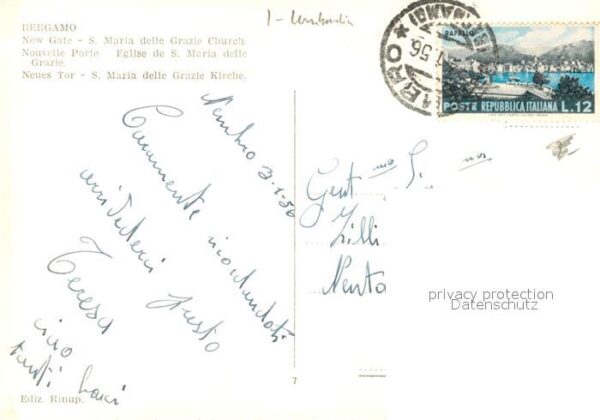 BERGAMO
New Gate - S. Maria delle Grazie Church.
Nouvelle Porte - Eglise de S. Maria delle
Grazie.
Neues Tor - S. Maria delle Grazie Kirche.
I - Lombardia
56
RAPALLO
POSTE REPUBBLICA ITALIANA L.12
Nembro 3-1-56
Caramente ricordandoti
arrivederci presto
Teresa
ciao
tanti baci
Gent.ma S.
Zilli
privacy protection
Datenschutz
7
Ediz. Rinup.